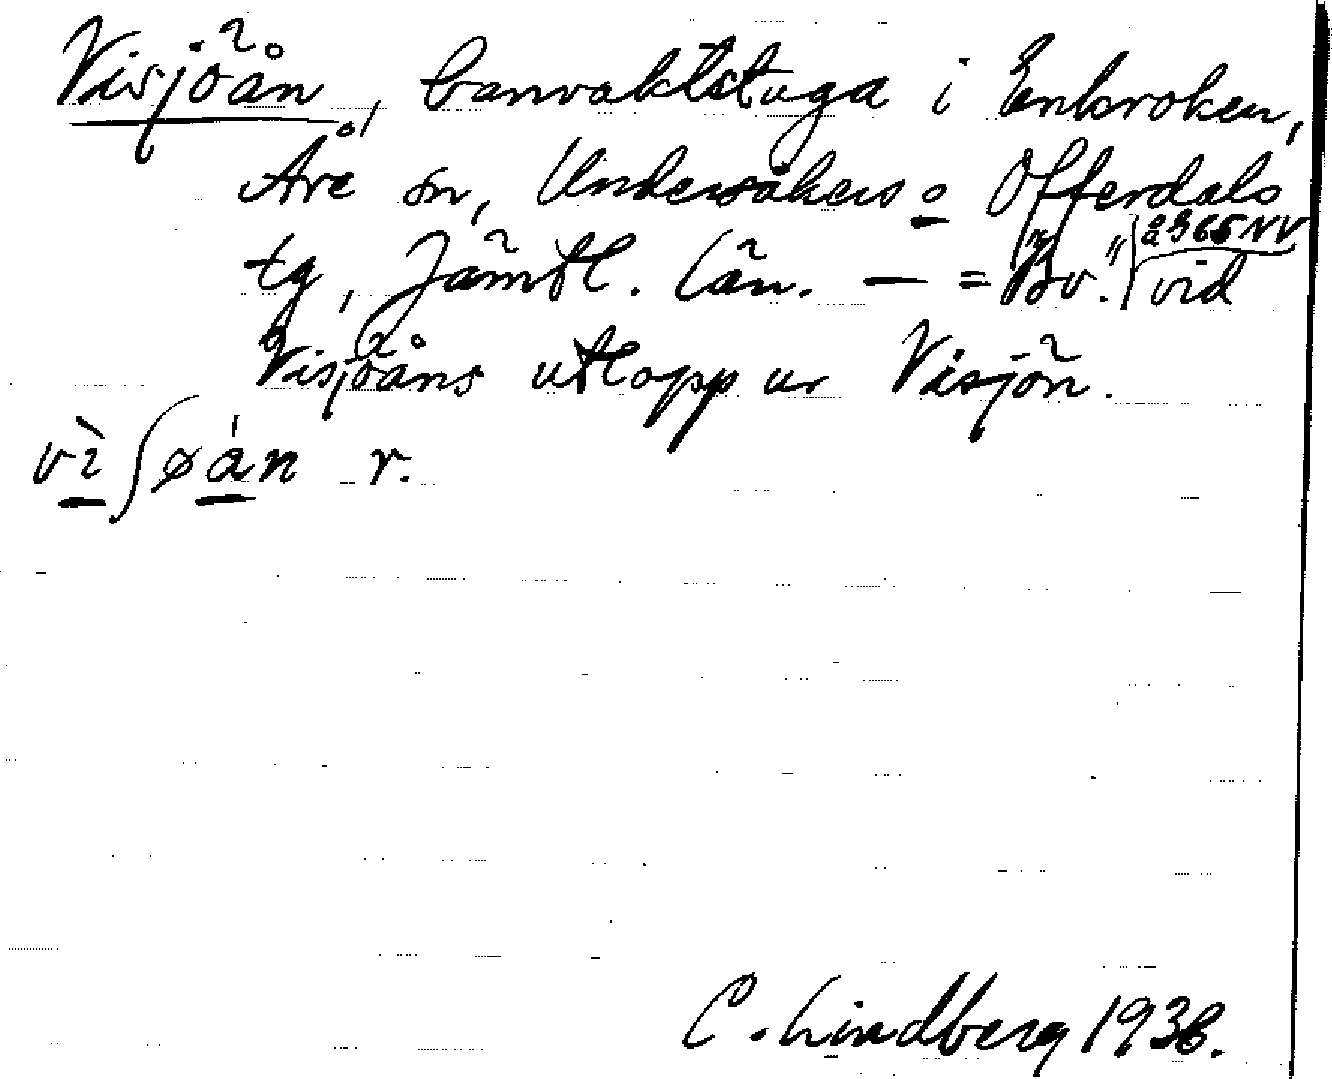 Visjöån, banvaktstuga i Enkroken,
Åre sn, Undersåkers o Offerdals
tg, Jämtl. län. — = "Bv." å 365 NV vid
Visjöåns utlopp ur Visjön.
vìʃøán r.
C. Lindberg 1936.